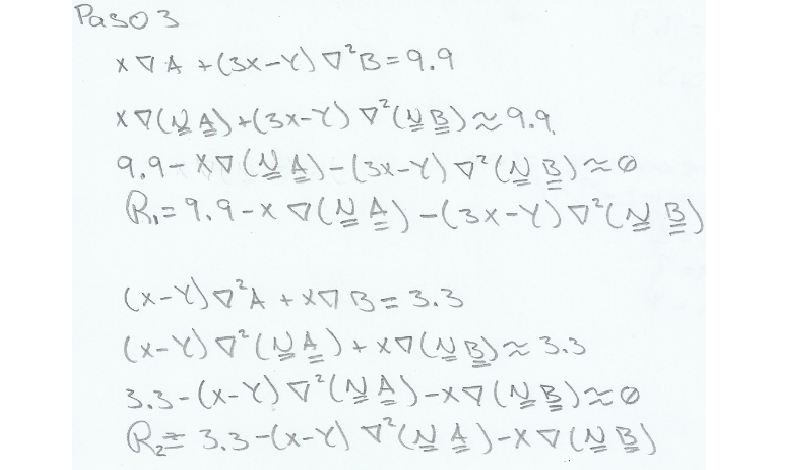 Paso 3
x ∇ A + (3x-Y) ∇²B = 9.9
x ∇(N A) + (3x-Y) ∇²(N B) ≈ 9.9
9.9 - x∇(N A) - (3x-Y) ∇²(N B) ≈ 0
R₁ = 9.9 - x ∇(N A) - (3x-Y) ∇²(N B)
(x-Y)∇²A + x∇ B = 3.3
(x-Y) ∇²(N A) + x∇(N B) ≈ 3.3
3.3 - (x-Y) ∇²(N A) - x∇(N B) ≈ 0
R₂ = 3.3 - (x-Y) ∇²(N A) - x ∇(N B)